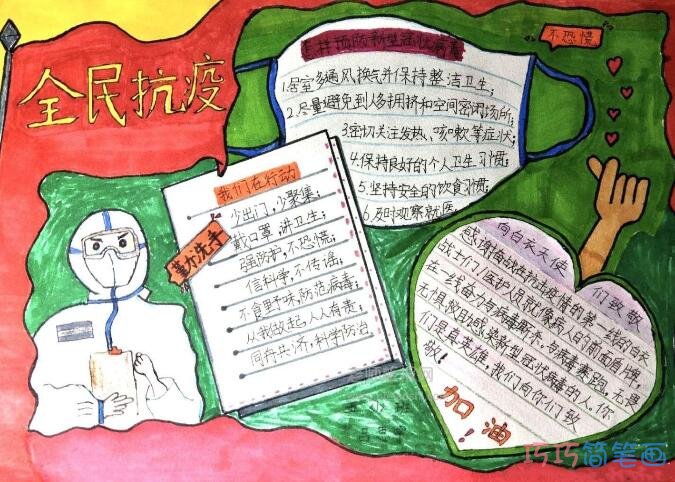 全民抗疫
怎样预防新型冠状病毒
1.居室多通风换气并保持整洁卫生;
2.尽量避免到人多拥挤和空间密闭场所;
3.密切关注发热、咳嗽等症状;
4.保持良好的个人卫生习惯;
5.坚持安全的饮食习惯;
6.及时观察就医;
不恐慌
我们在行动
少出门,少聚集;
戴口罩,讲卫生;
强防护,不恐慌;
信科学,不传谣;
不食野味,防范病毒;
从我做起,人人有责;
同舟共济,科学防治
勤洗手
向白衣天使们致敬
感谢奋战在抗击疫情的第一线的白衣
战士们,医护人员就像病人的前面盾牌,
在一线奋力与病毒厮杀,与病毒赛跑,无畏
无惧救助感染新型冠状病毒的人,你
们是真英雄,我们向你们致
敬!
加油!
巧巧简笔画